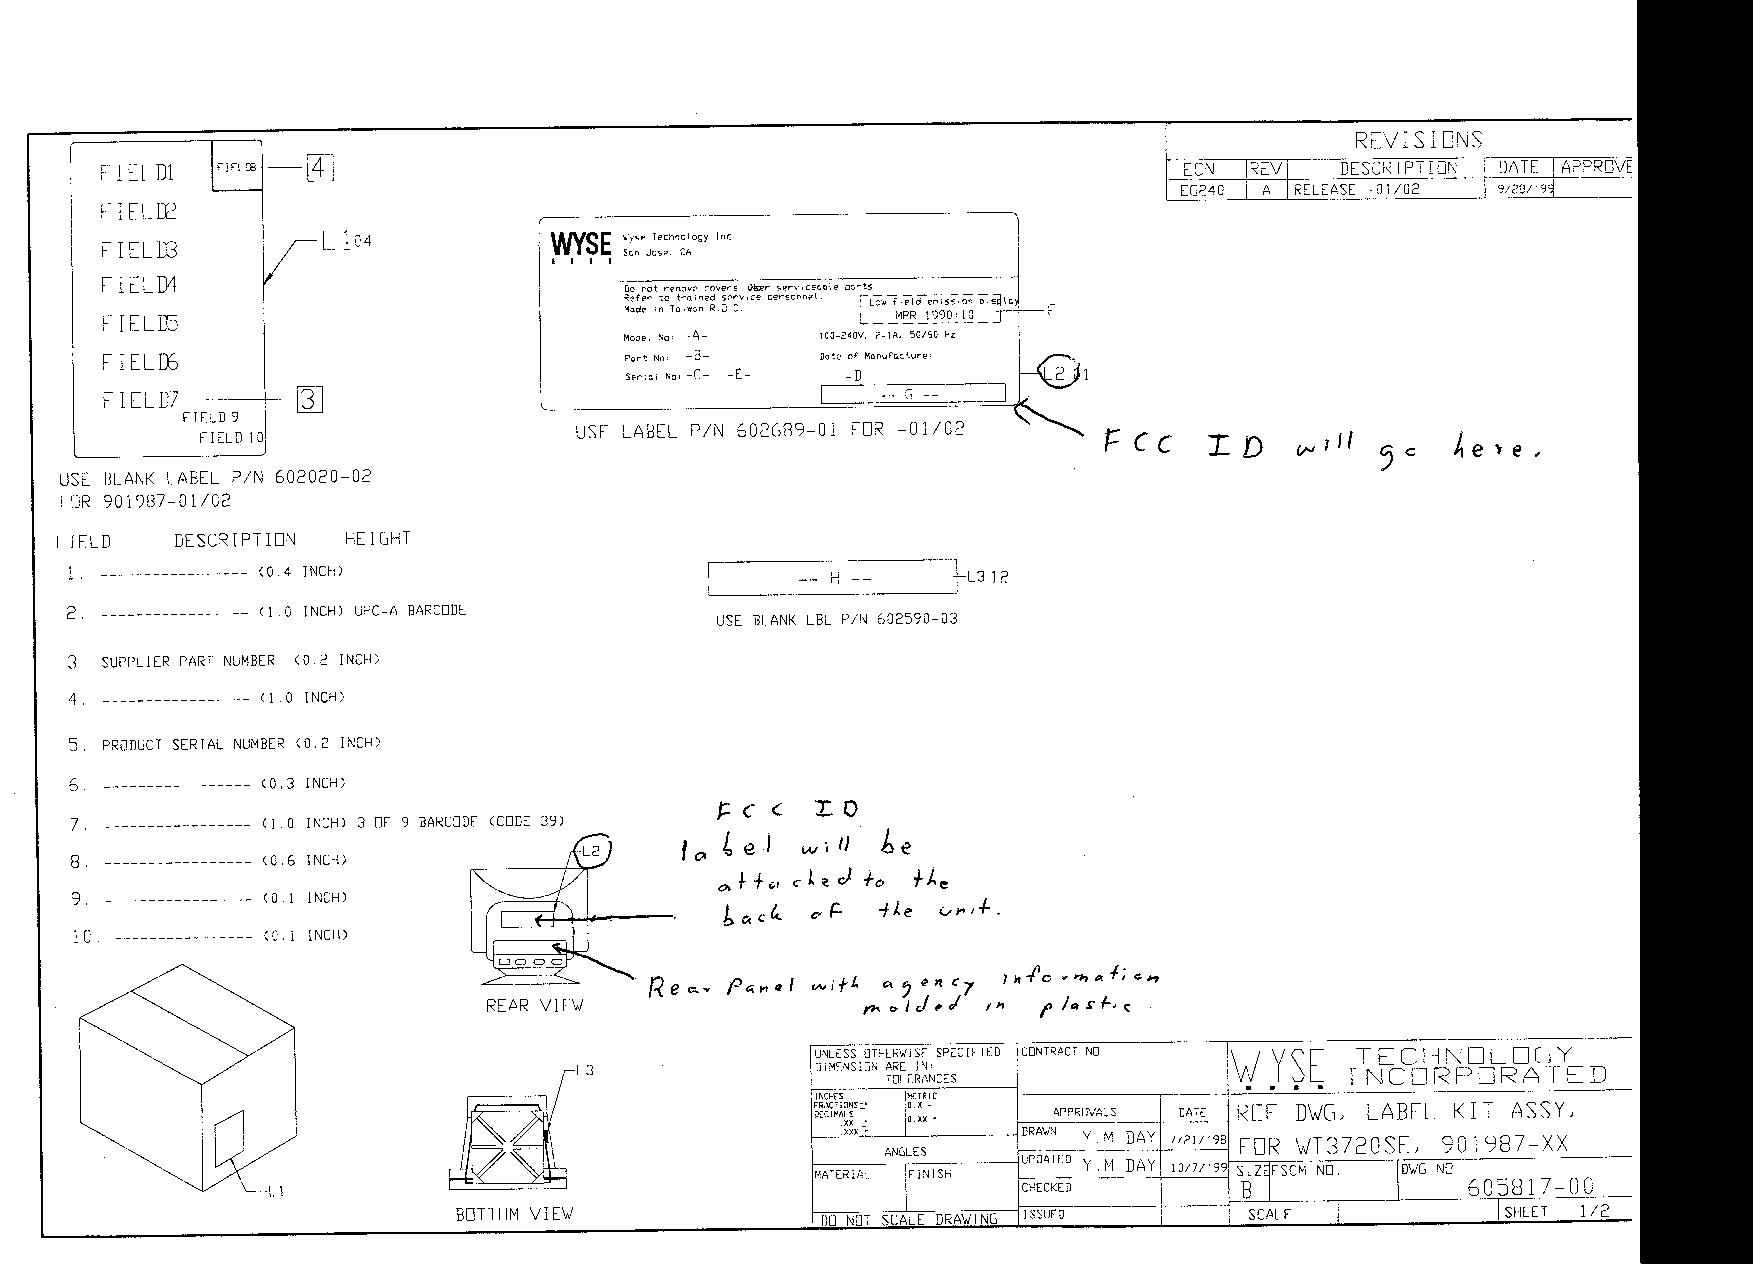 REVISIONS
ECN REV DESCRIPTION DATE APPROVE
EG240 A RELEASE -01/02 9/20/'99
FIELD1
FIELD8
4
FIELD2
FIELD3
L1
FIELD4
FIELD5
FIELD6
FIELD7
3
FIELD 9
FIELD 10
USE BLANK LABEL P/N 602020-02
FOR 901987-01/02
WYSE
Wyse Technology Inc
San Jose, CA
Do not remove covers. User serviceable parts
Refer to trained service personnel.
Made in Taiwan R.O.C.
Low field emission display
MPR 1990:10
F
Model No: -A-
100-240V, 2-1A, 50/60 Hz
Part No: -B-
Date of Manufacture:
Serial No: -C- -E-
-D
-- G --
L2
USE LABEL P/N 602689-01 FOR -01/02
FCC ID will go here.
FIELD DESCRIPTION HEIGHT
1. ----------------- (0.4 INCH)
2. -------------- -- (1.0 INCH) UPC-A BARCODE
3 SUPPLIER PART NUMBER (0.2 INCH)
4. -------------- -- (1.0 INCH)
5. PRODUCT SERIAL NUMBER (0.2 INCH)
6. --------- ------ (0.3 INCH)
7. ----------------- (1.0 INCH) 3 OF 9 BARCODE (CODE 39)
8. ----------------- (0.6 INCH)
9. - ----------- -- (0.1 INCH)
10. ---------------- (0.1 INCH)
-- H --
L3 12
USE BLANK LBL P/N 602590-03
L2
FCC ID
label will be
attached to the
back of the unit.
Rear Panel with agency information
molded in plastic.
REAR VIEW
L1
L3
BOTTOM VIEW
UNLESS OTHERWISE SPECIFIED
DIMENSION ARE IN:
TOLERANCES
INCHES METRIC
FRACTIONS± 0.X ±
DECIMALS 0.XX ±
.XX ±
.XXX ±
ANGLES
MATERIAL FINISH
DO NOT SCALE DRAWING
CONTRACT NO
APPROVALS DATE
DRAWN Y.M DAY 7/21/'98
UPDATED Y.M DAY 10/7/'99
CHECKED
ISSUED
WYSE TECHNOLOGY
INCORPORATED
REF DWG, LABEL KIT ASSY,
FOR WT3720SE, 901987-XX
SIZE FSCM NO. DWG NO
B 605817-00
SCALE SHEET 1/2